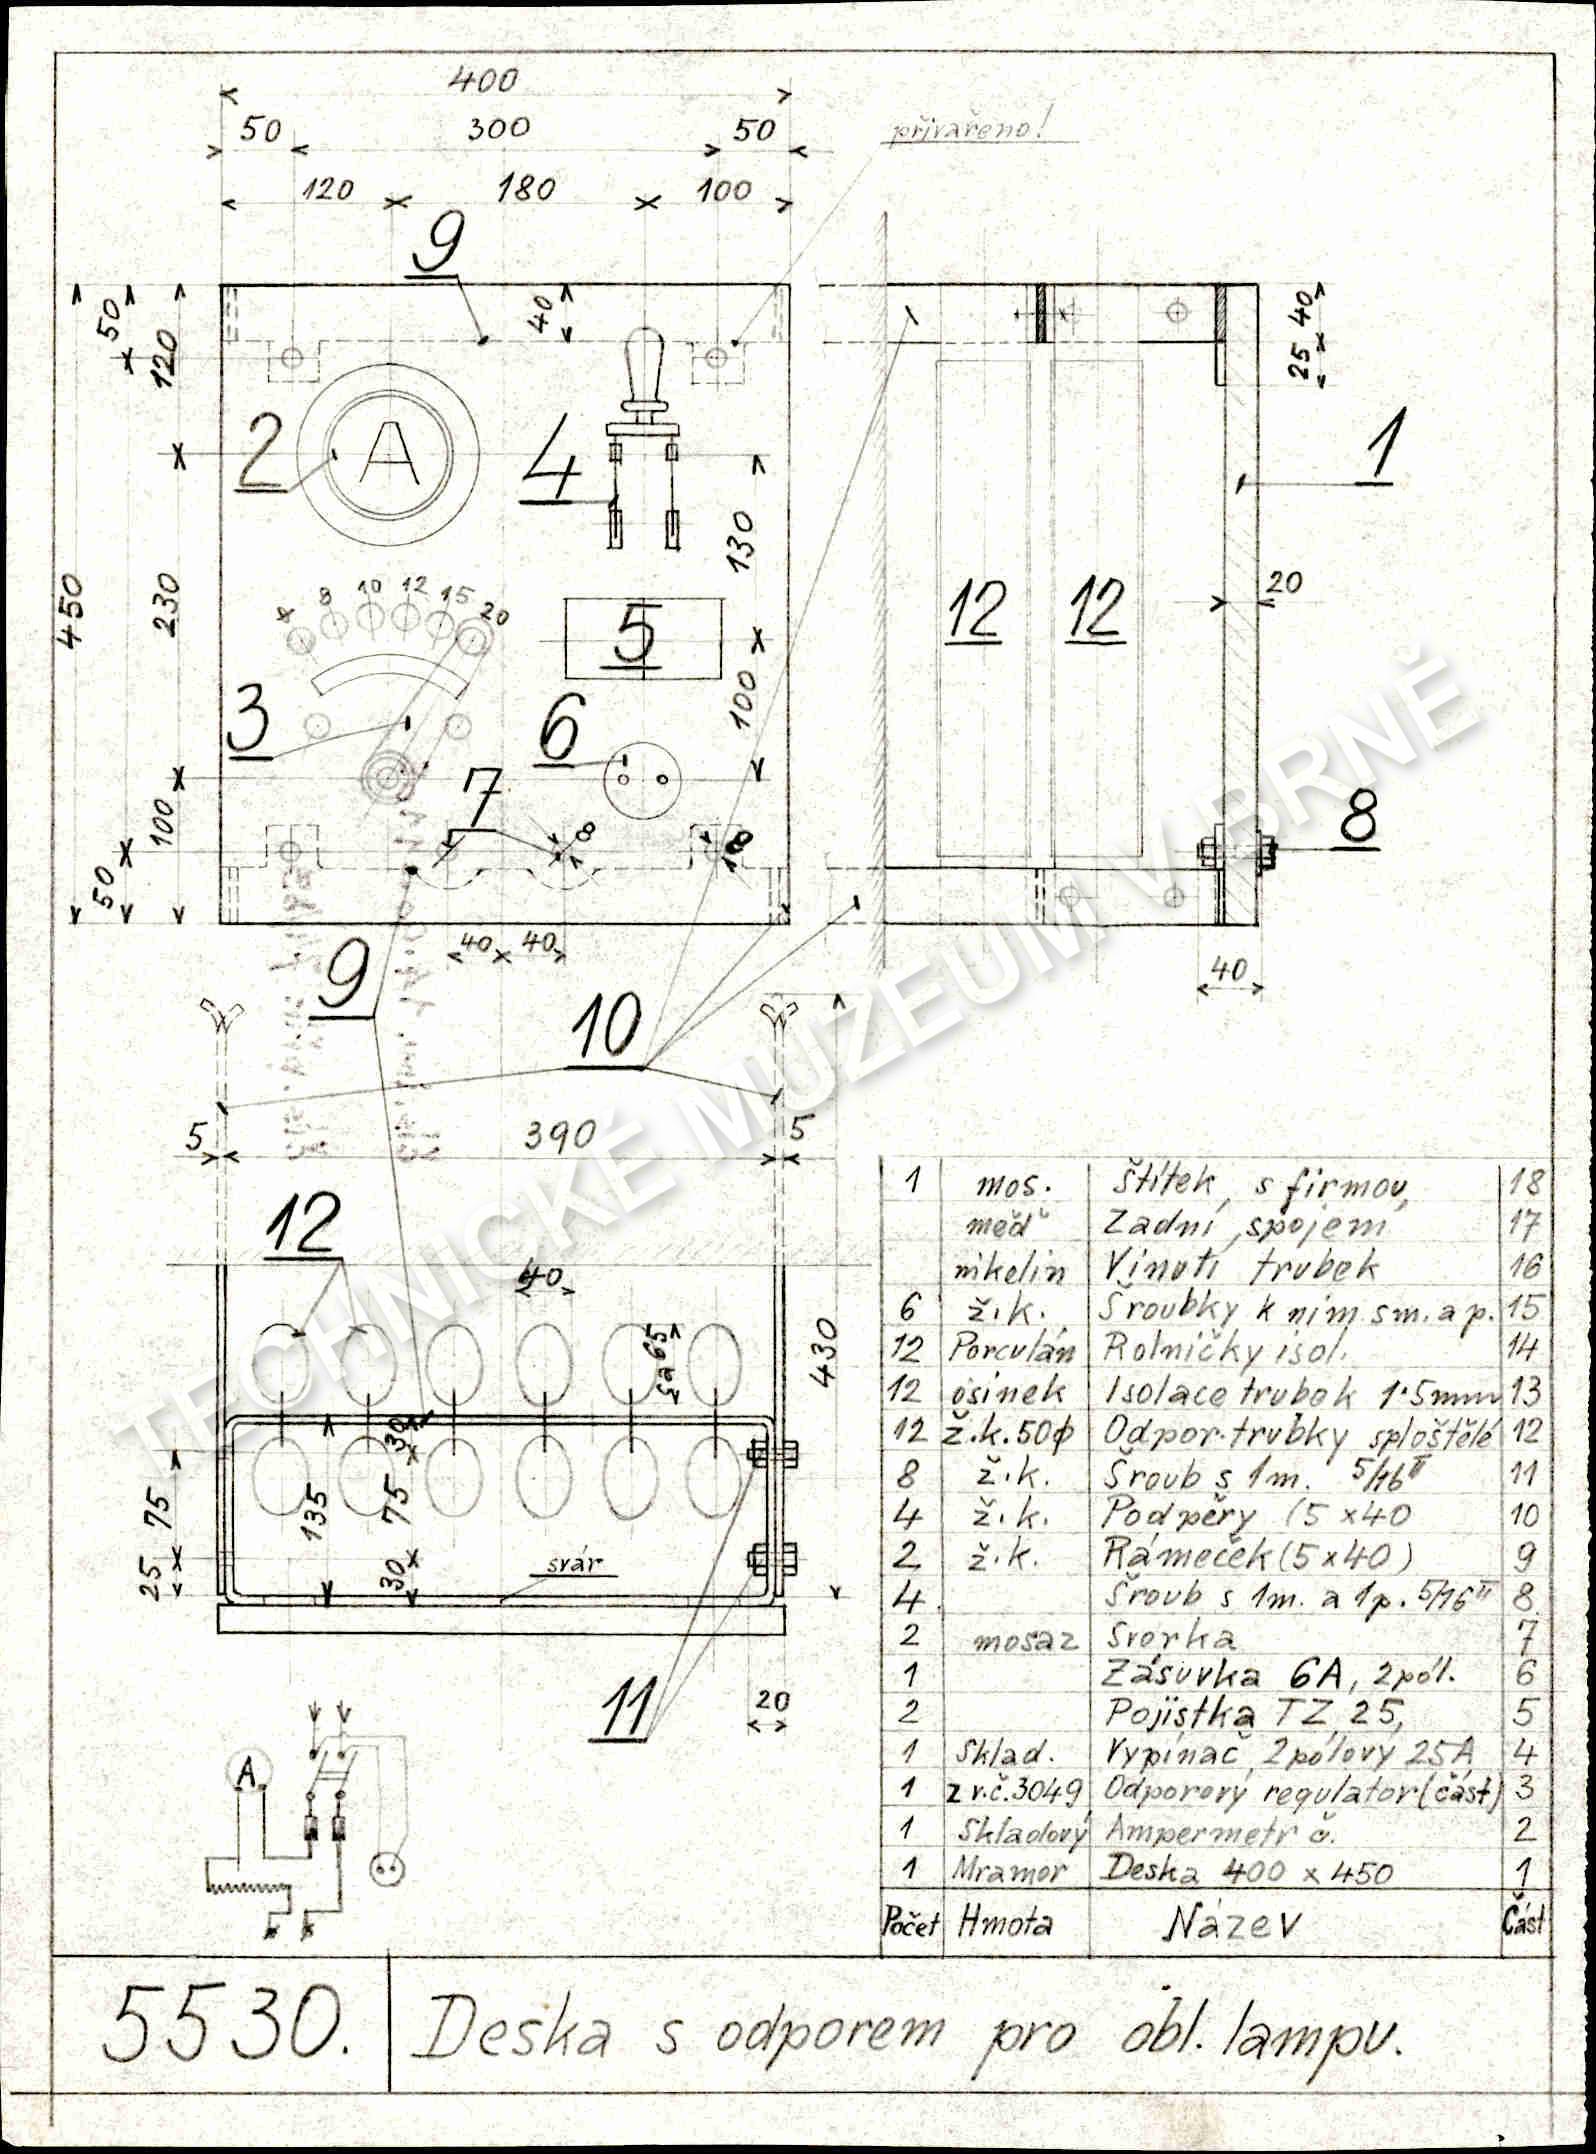 400
50 300 50
přivařeno!
120 180 100
9
50
120
40
40
25
2
A
4
1
130
450
230
8 10 12 15 20
5
12 12
20
3
6
100
7
8
8
8
100
50
40 40
40
9
10
5 390 5
12
40
430
30
135
75
75
25
30
svár
11
20
A
1 mos. Štítek s firmou, 18
měď Zadní spojení 17
nikelin Vinutí trubek 16
6 ž.k. Šroubky k nim s m. a p. 15
12 Porculán Rolničky isol. 14
12 osinek Isolace trubek 1·5mm 13
12 ž.k.50ϕ Odpor.trubky sploštělé 12
8 ž.k. Šroub s 1m. 5/16" 11
4 ž.k. Podpěry (5 x 40 10
2 ž.k. Rámeček (5 x 40) 9
4 Šroub s 1m. a 1p. 5/16" 8
2 mosaz Svorka 7
1 Zásuvka 6A, 2pól. 6
2 Pojistka TZ 25, 5
1 Sklad. Vypínač 2pólový 25A 4
1 z v.č.3049 Odporový regulator (část) 3
1 Skladový Ampermetr č. 2
1 Mramor Deska 400 x 450 1
Počet Hmota Název Část
5530. Deska s odporem pro obl. lampu.
TECHNICKÉ MUZEUM V BRNĚ